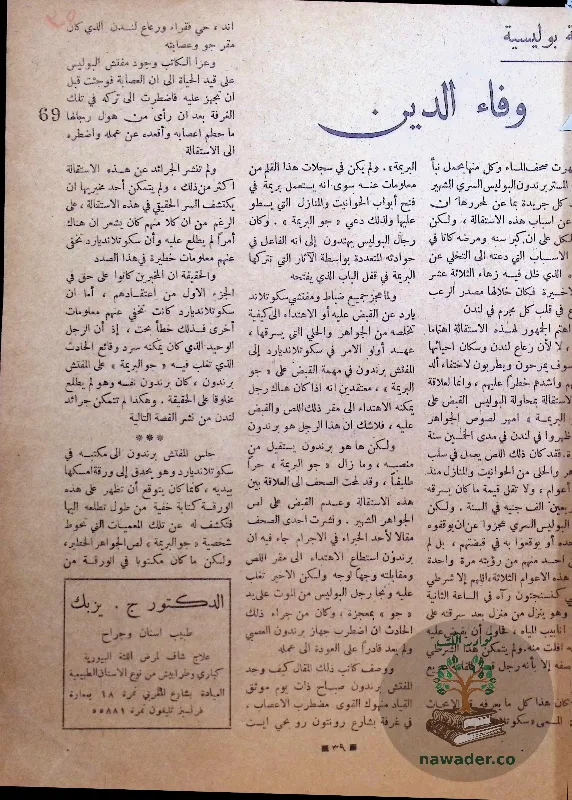 ة بوليسية
وفاء الدين
ظهرت صحف المساء وكل منها يحمل نبأ
المستر برندون البوليس السري الشهير
كل جريدة بما عن لمحررها ان
عن اسباب هذه الاستقالة ، ولكن
لكل على ان كبر سنه ومرضه كانا في
الاسباب التي دعته الى التخلي عن
ه الذي ظل فيه زهاء الثلاثة عشر
لاخيرة فكان خلالها مصدر الرعب
ع في قلب كل مجرم في لندن
اهتم الجمهور لهذه الاستقالة اهتماما
، لأن رعاع لندن وسكان احيائها
سوف يمرحون ويطربون لاختفاء ألد
هم واشدهم خطراً عليهم ، وانما لعلاقة
لاستقالة بمحاولة البوليس القبض على
البريمة » امير لصوص الجواهر
ظهروا في لندن في مدى الخمسين سنة
ة. فقد كان ذلك اللص يحمل في سلب
ر والحلى من الحوانيت والمنازل منذ
أعوام ، ولا تقل قيمة ما كان يسرقه
ربعين الف جنيه في السنة . ولكن
البوليس السري عجزوا عن ان يوقفوه
حده أو يوقعوا به في قبضتهم ، بل لم
احد منهم من رؤيته مرة واحدة
هذه الاعوام الثلاثة ، اللهم إلا شرطي
كنسنجتون رآه في الساعة الثانية
وهو ينزل من منزل بعد سرقته على
انابيب المياه
البريمة » . ولم يكن في سجلات هذا القلم من
معلومات عنه سوى انه يستعمل بريمة في
فتح أبواب الحوانيت والمنازل التي يسطو
عليها ولذلك دعي « جو البريمة » . وكان
رجال البوليس يهتدون إلى انه الفاعل في
حوادثه المتعددة بواسطة الآثار التي تتركها
البريمة في قفل الباب الذي يفتحه
ولما عجز جميع ضباط ومفتشي سكوتلاند
يارد عن القبض عليه أو الاهتداء الى كيفية
تخلصه من الجواهر والحلى التي يسرقها ،
عهد أولو الامر في سكوتلانديارد إلى
المفتش برندون في مهمة القبض على « جو
البريمة » ، معتقدين انه اذا كان هناك رجل
يمكنه الاهتداء الى مقر ذلك اللص والقبض
عليه ، فلاشك ان هذا الرجل هو برندون
ولكن ها هو برندون يستقيل من
منصبه ، وما زال « جو البريمة » حراً
طليقاً ، وقد لمحت الصحف الى العلاقة بين
هذه الاستقالة وعدم القبض على لص
الجواهر الشهير . ونشرت احدى الصحف
مقالا لأحد الخبراء في الاجرام جاء فيه ان
برندون استطاع الاهتداء الى مقر اللص
ومقابلته وجها لوجه ولكن الاخير تغلب
عليه ونجا رجل البوليس من الموت على يد
« جو » بمعجزة ، وكان من جراء ذلك
الحادث ان اضطرب جهاز برندون العصبي
ولم يعد قادراً على العودة الى عمله
ووصف كاتب ذلك المقال كيف وجد
المفتش برندون صباح ذات يوم موثق
القياد منهوك القوى مضطرب الاعصاب ،
في غرفة بشارع رونتون رو بحي ايست
اند ، حي فقراء ورعاع لندن الذي كان
مقر جو وعصابته
وعزا الكاتب وجود مفتش البوليس
على قيد الحياة الى ان العصابة فوجئت قبل
ان تجهز عليه فاضطرت الى تركه في تلك
الغرفة بعد ان رأى من هول رجالها
ما حطم اعصابه وأقعده عن عمله واضطره
الى الاستقالة
ولم تنشر الجرائد عن هذه الاستقالة
اكثر من ذلك ، ولم يتمكن أحد مخبريها ان
يكتشف السر الحقيقي في هذه الاستقالة ، على
الرغم من ان كلا منهم كان يشعر ان هناك
أمراً لم يطلع عليه وأن سكوتلانديارد تخفي
عنهم معلومات خطيرة في هذا الصدد
والحقيقة ان المخبرين كانوا على حق في
الجزء الاول من اعتقادهم ، أما ان
سكوتلانديارد كانت تخفي عنهم معلومات
أخرى فذلك خطأ بحت ، إذ أن الرجل
الوحيد الذي كان يمكنه سرد وقائع الحادث
الذي تغلب فيه « جو البريمة » على المفتش
برندون ، كان برندون نفسه وهو لم يطلع
مخلوقا على الحقيقة . وهكذا لم تتمكن جرائد
لندن من نشر القصة التالية
***
جلس المفتش برندون الى مكتبه في
سكوتلانديارد وهو يحدق إلى ورقة امسكها
بيديه ، كأنما كان يتوقع أن تظهر على هذه
الورقة كتابة خفية من طول تطلعه اليها
فتكشف له عن تلك المعميات التي تحوط
شخصية « جو البريمة » لص الجواهر الخطير ،
ولكن ما كان مكتوبا في الورقة من
69
الدكتور ج . يزبك
طبيب اسنان وجراح
علاج شاف لمرض اللثة البيورية
كباري وطرابيش من نوع الاسنان الطبيعية
العيادة بشارع المغربي نمرة ١٨ بعمارة
فرانسيز تليفون نمرة ٥٥٨٨١
٣٩
نوادر الكتب
nawader.co